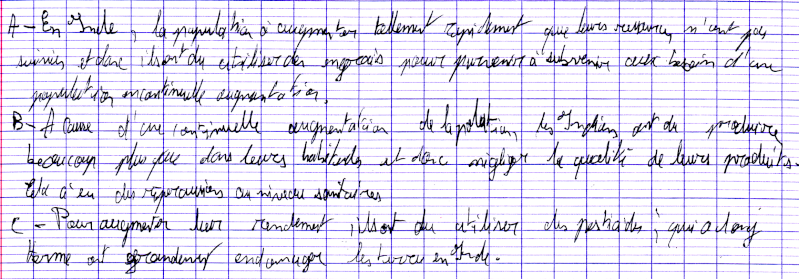 A - En Inde, la population à augmenter tellement rapidement que leurs ressources n'ont pas
suivies et donc ils ont du utiliser des engrais pour parvenir à subvenir aux besoin d'une
population en continuelle augmentation.
B - A cause d'une continuelle augmentation de la polation, les Indiens ont du produire
beaucoup plus que dans leurs habitudes et donc négliger la qualité de leurs produits.
Cela à eu des répercussions au niveau sanitaires
C - Pour augmenter leur rendement, ils ont du utiliser des pesticides, qui a long
terme ont grandement endomager les terres en Inde.